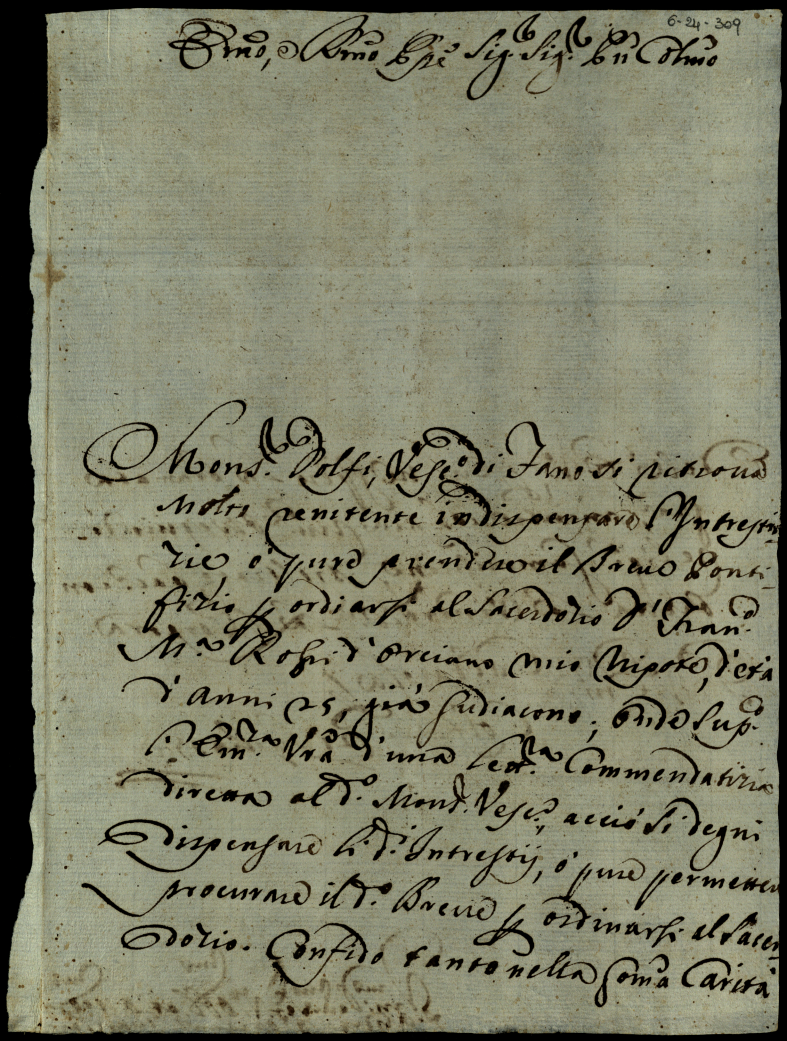 6-24-309
Emo, e Rmo Pre Sig.r Sig.r Pn Colmo
Mons.r Dolfi, Vesc.o di Fano si ritrova
Molto renitente in dispensare l'Intresti-
zie ò pure prendere il Breve Ponti-
fizio p ordiarsi al Sacerdozio D. Fran.o
M.a Rossi d'Orciano mio Nipote, d'età
d'Anni 25, già Sudiacono; onde Sup.o
l'Em.za Vra d'una lett.ra Commendatizia
diretta al d.o Mons.r Vesc.o, acciò si degni
dispensare l'i d.i Intrestij, ò pure permetter
procurare il d.o Breve p ordinarsi al Sacer-
dozio. Confido tanto nella Soma Carità